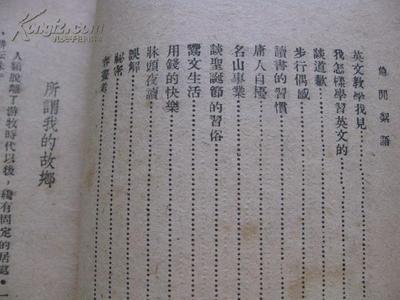 偷閒絮語
英文教學我見
我怎樣學習英文的
談道歉
步行偶感
讀書的習慣
庸人自擾
名山事業
談聖誕節的習俗
鬻文生活
用錢的快樂
牀頭夜讀
誤解
祕密
所謂我的故鄉
人類脫離了游牧時代以後，纔有固定的居處。一